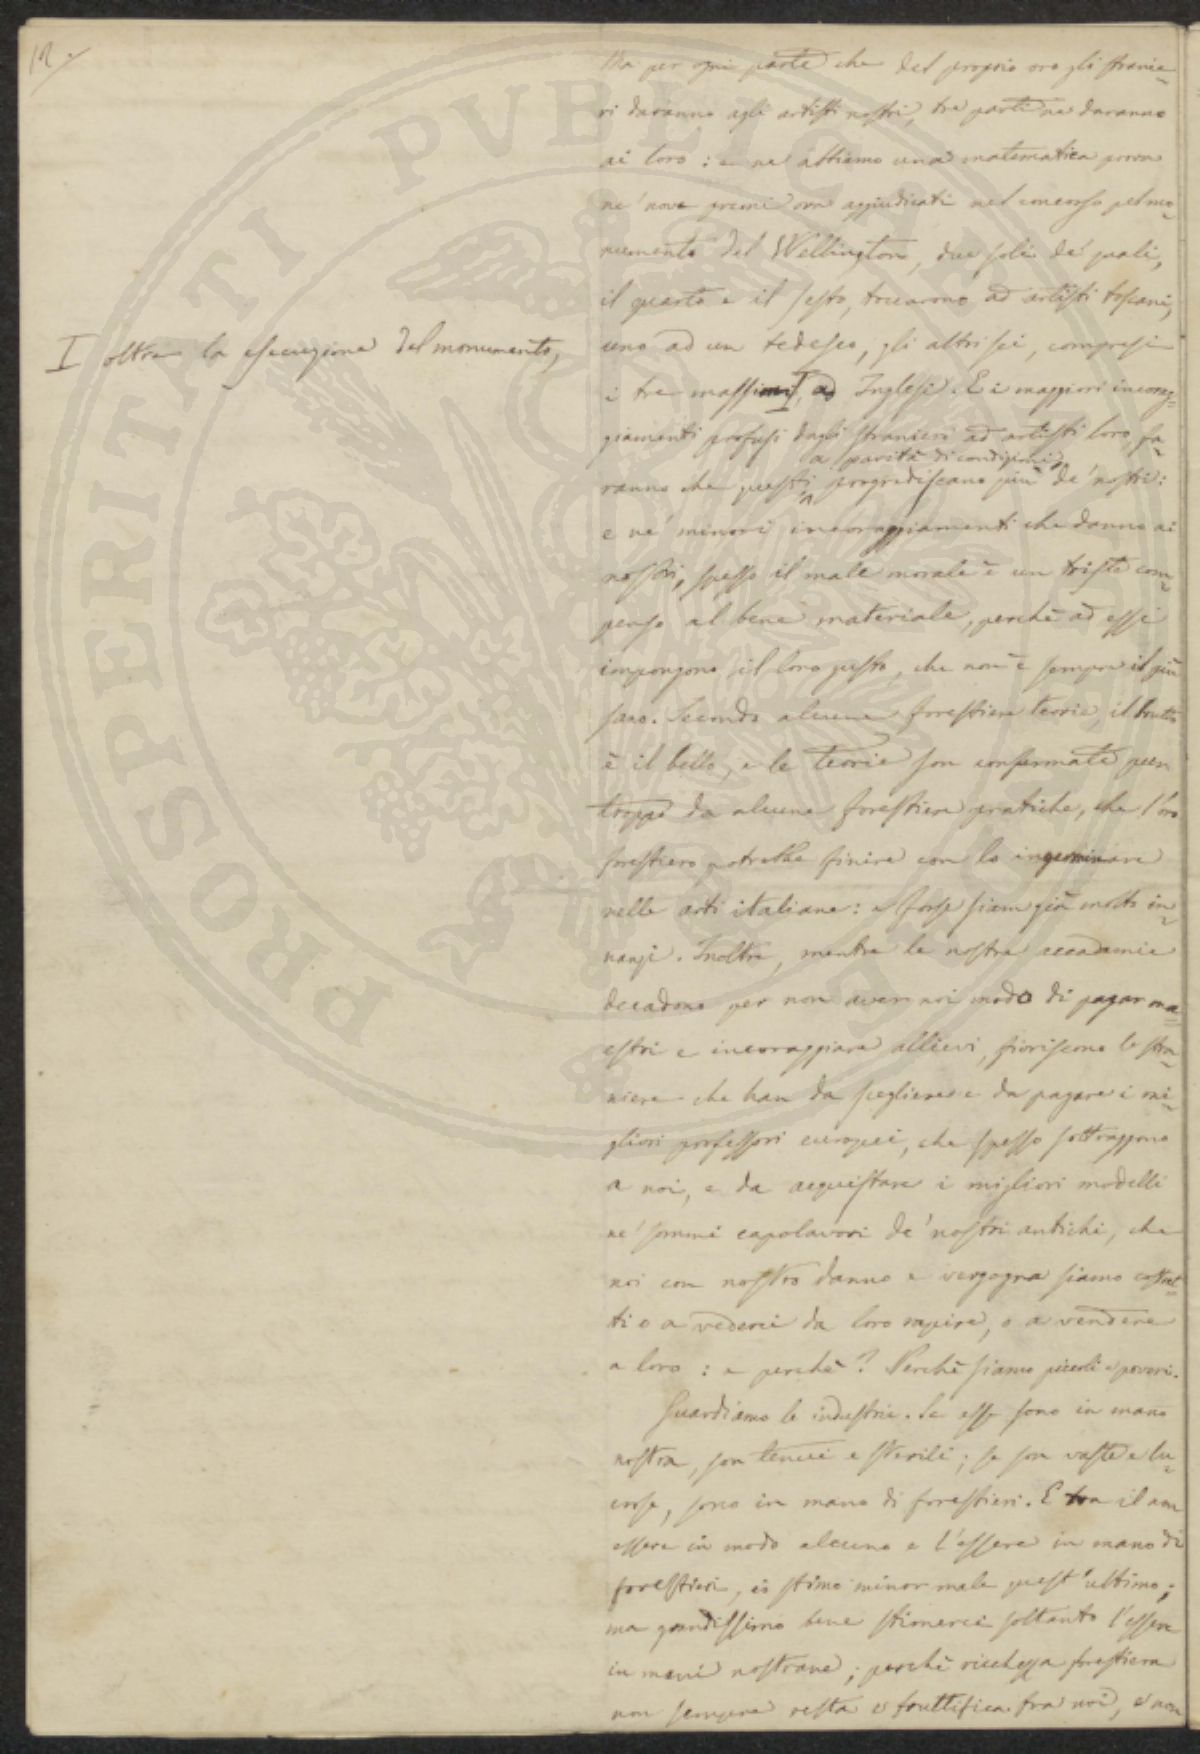 12.
Ma per ogni parte che del proprio oro gli stranie-
ri daranno agli artisti nostri, tre parti ne daranno
ai loro: e ne abbiamo una matematica prova
ne' nove premi ora aggiudicati nel concorso pel mo-
numento del Wellington, due soli de' quali,
il quarto e il sesto, toccarono ad artisti toscani,
uno ad un tedesco, gli altri sei, compresi
i tre massimi, I ad Inglesi. E i maggiori incorag-
I oltre la esecuzione del monumento,
giamenti profusi dagli stranieri ad artisti loro, fa-
ranno che questi a parità di condizioni progrediscano più de' nostri:
e ne' minori incoraggiamenti che danno ai
nostri, spesso il male morale è un triste com-
penso al bene materiale, perchè ad essi
impongono il loro gusto, che non è sempre il più
sano. Secondo alcune forestiere teorie, il brutto
è il bello, e le teorie son confermate pur
troppo da alcune forestiere pratiche, che l'oro
forestiero potrebbe finire con lo ingerminare
nelle arti italiane: e forse siam già molto in-
nanzi. Inoltre, mentre le nostre accademie
decadono per non aver noi modo di pagar ma-
estri e incoraggiare allievi, fioriscono le stra-
niere che han da scegliere e da pagare i mi-
gliori professori europei, che spesso sottraggono
a noi, e da acquistare i migliori modelli
ne' sommi capolavori de' nostri antichi, che
noi con nostro danno e vergogna siamo costret-
ti o a vederci da loro rapire, o a vendere
a loro: e perchè? Perchè siamo piccoli e poveri.
Guardiamo le industrie. Se esse sono in mano
nostra, son tenui e sterili; se son vaste e lu-
crose, sono in mano di forestieri. E tra il non
essere in modo alcuno e l'essere in mano di
forestieri, io stimo minor male quest'ultimo;
ma grandissimo bene stimerei soltanto l'essere
in mani nostrane; perchè ricchezza forestiera
non sempre resta e fruttifica fra noi, e non
PROSPERITATI PVBLICAE